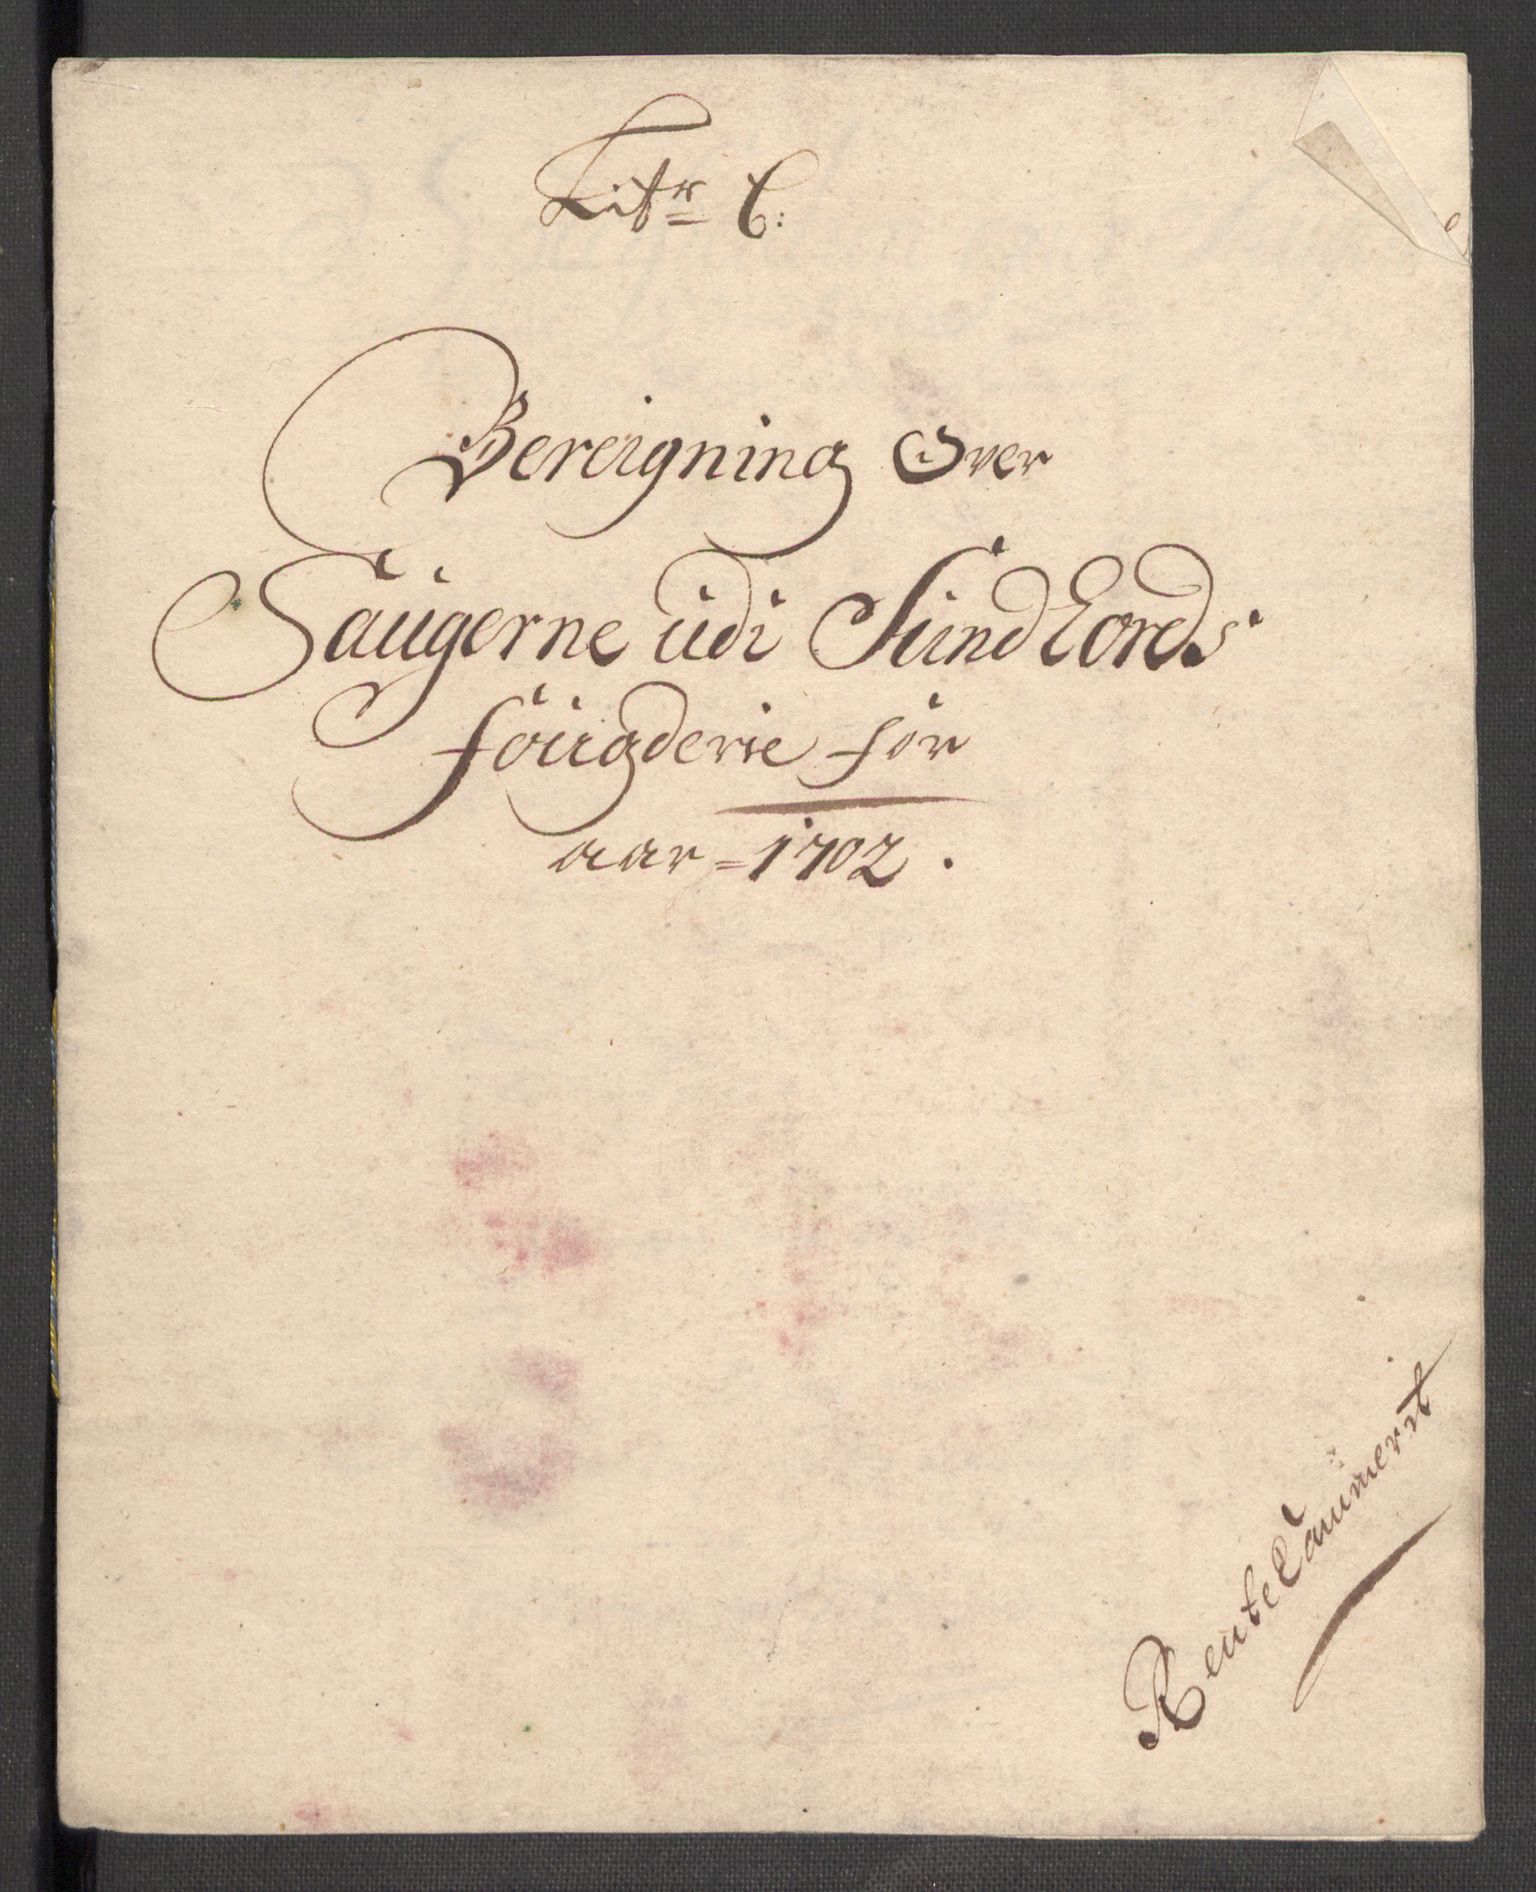 Litr C:
Bereigning Over
Saugerne udi Sundlords
fougderie for
aar = 1702.
RenteCammerit